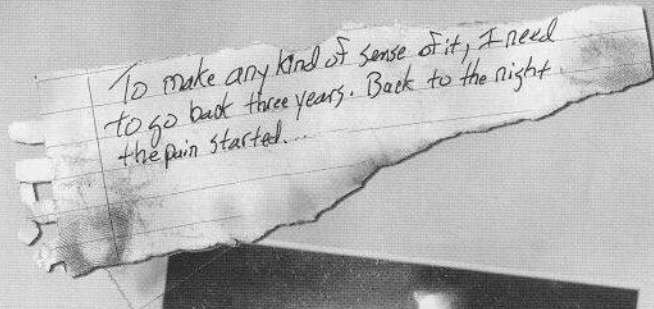 To make any kind of sense of it, I need
to go back three years. Back to the night
the pain started...